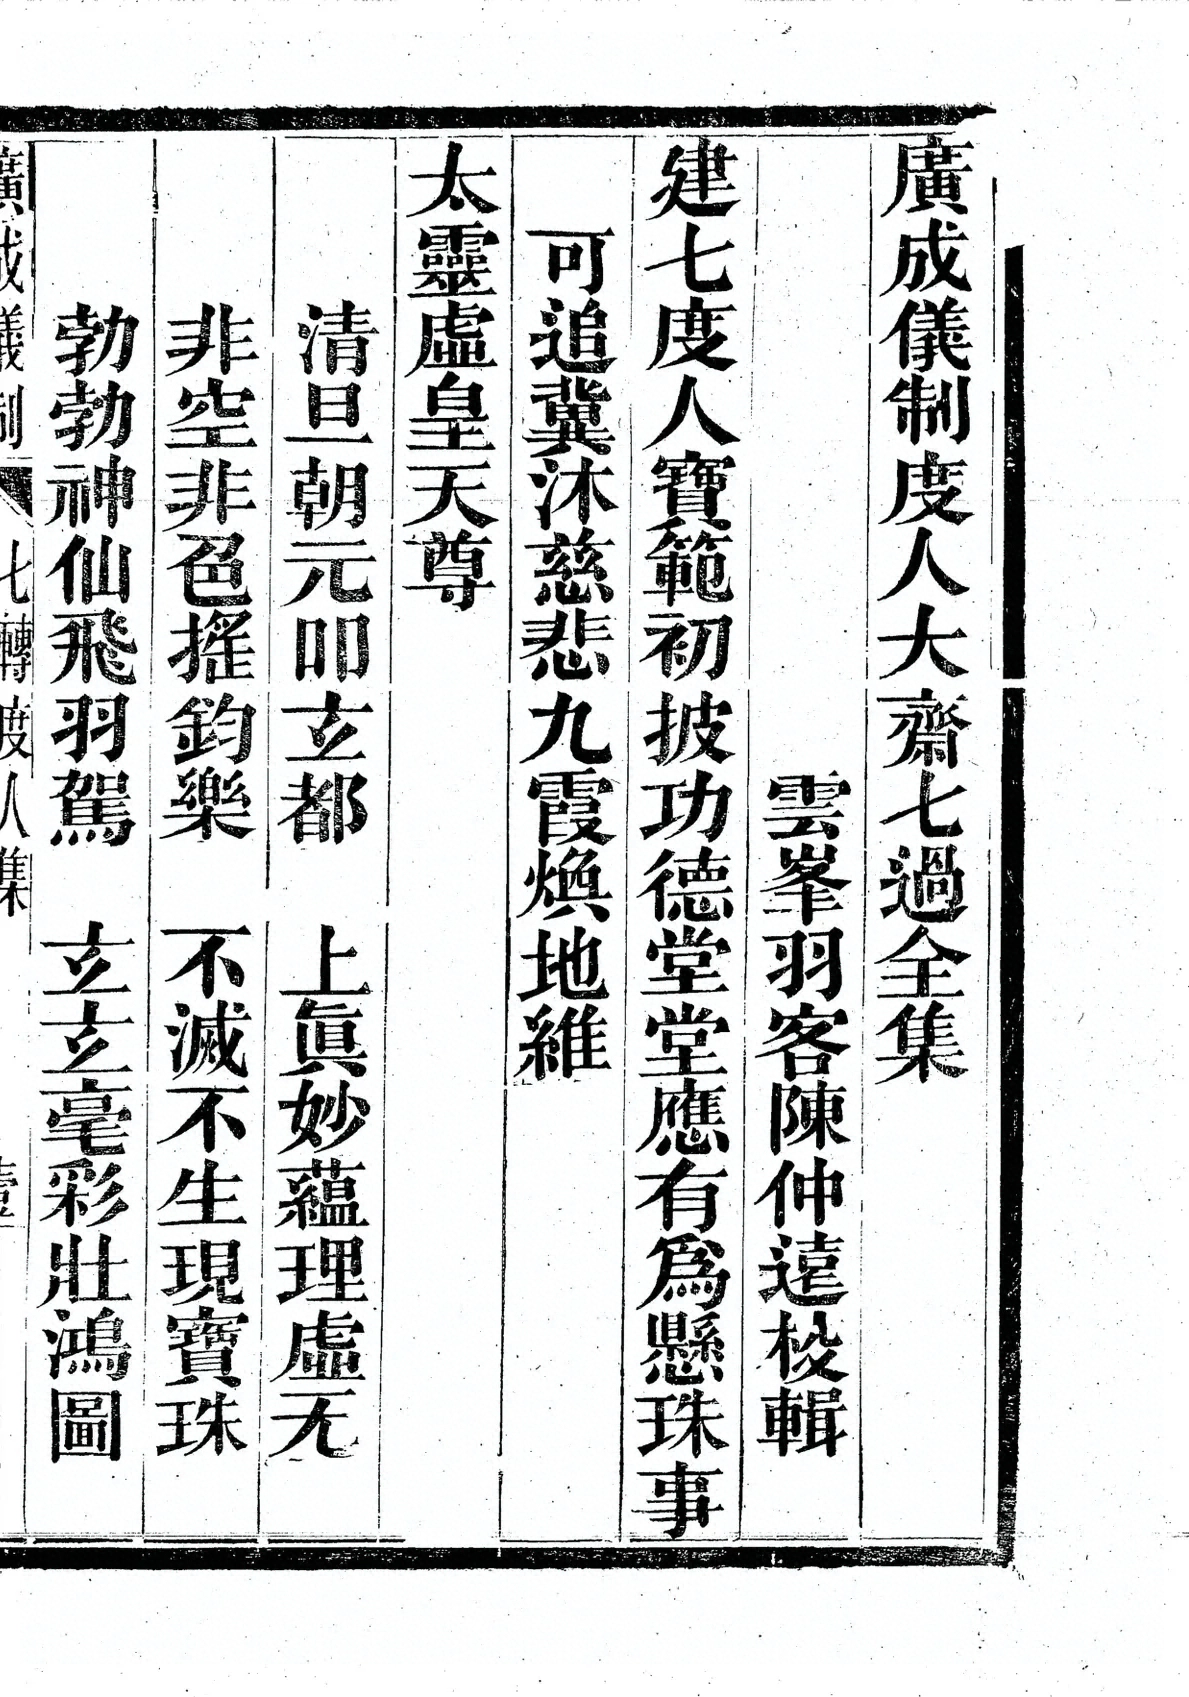 廣成儀制度人大齋七過全集
雲峯羽客陳仲遠校輯
建七度人寶範初披功德堂堂應有爲懸珠事
可追冀沐慈悲九霞煥地維
太靈虛皇天尊
清旦朝元叩玄都　上眞妙蘊理虛无
非空非色搖鈞樂　不滅不生現寶珠
勃勃神仙飛羽駕　玄玄毫彩壯鴻圖
廣成儀制　七轉度人集　壹